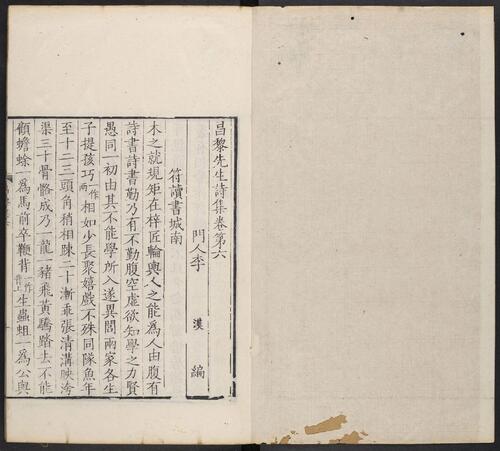 昌黎先生詩集卷第六
門人李 漢 編
符讀書城南
木之就規矩在梓匠輪輿人之能為人由腹有
詩書詩書勤乃有不勤腹空虛欲知學之力賢
愚同一初由其不能學所入遂異閭兩家各生
子提孩巧一作兩相如少長聚嬉戲不殊同隊魚年
至十二三頭角稍相踈二十漸乖張清溝映汙
渠三十骨骼成乃一龍一豬飛黃騰踏去不能
顧蟾蜍一為馬前卒鞭背一作背上生蟲蛆一為公與